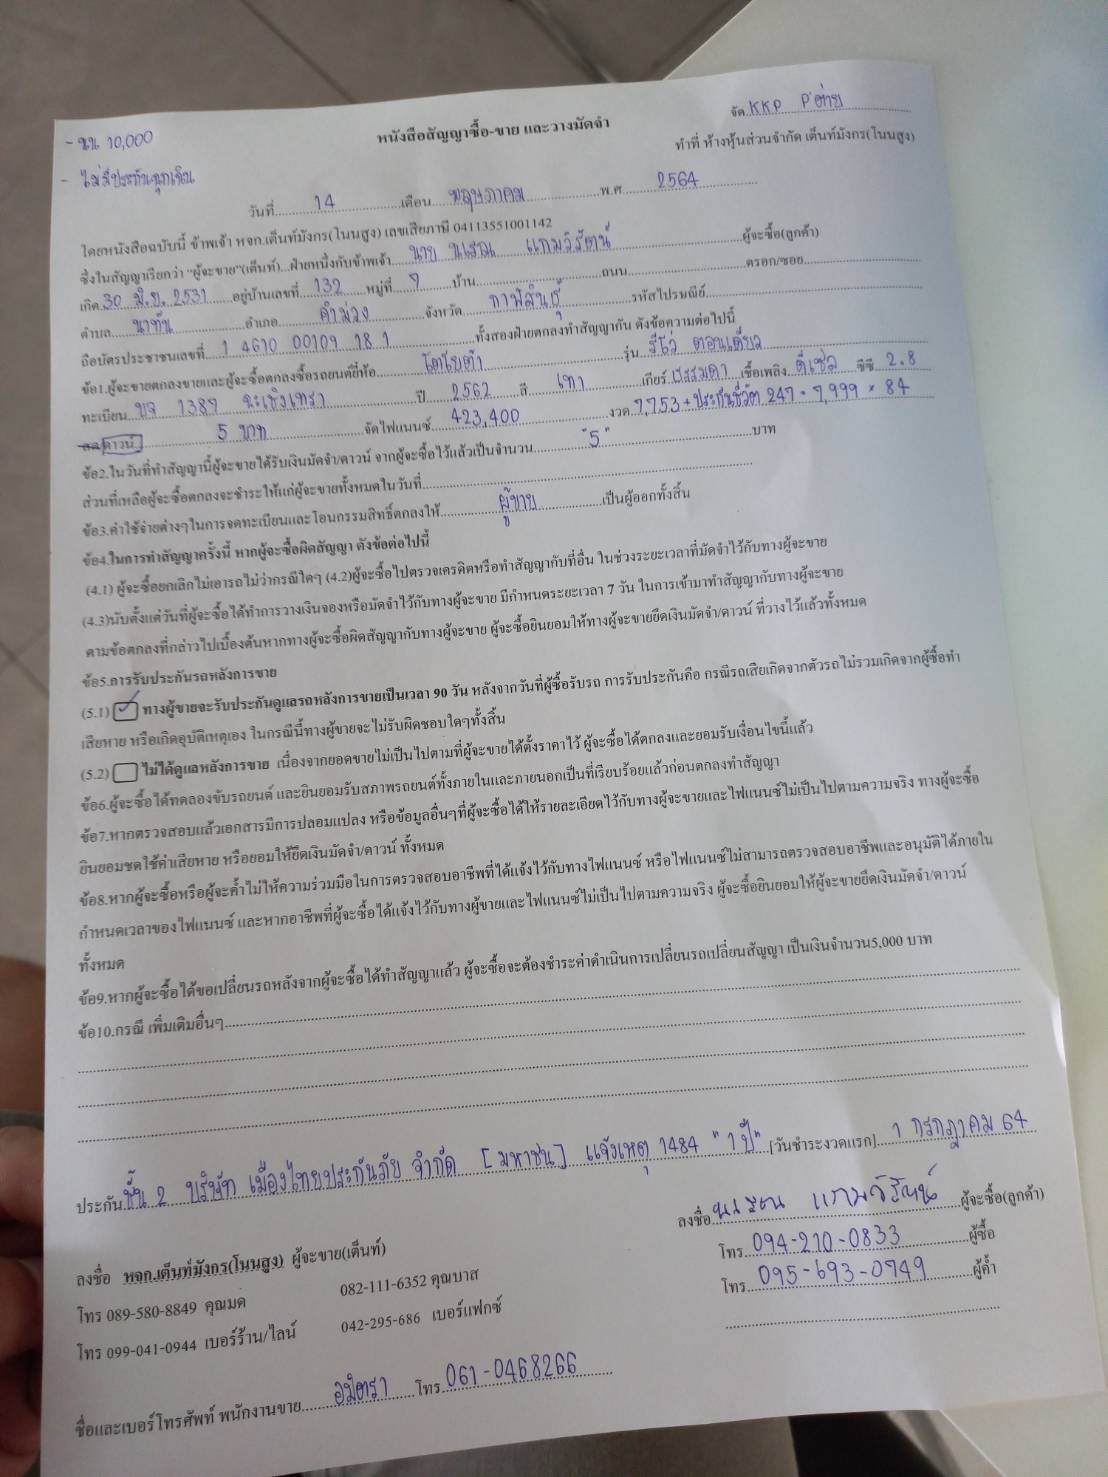 จัด KKP P'ต่าย
- ขน 10,000
หนังสือสัญญาซื้อ-ขาย และวางมัดจำ
ทำที่ ห้างหุ้นส่วนจำกัด เต็นท์มังกร(โนนสูง)
- ไม่มีประกันฉุกเฉิน
วันที่ 14 เดือน พฤษภาคม พ.ศ. 2564
โดยหนังสือฉบับนี้ ข้าพเจ้า หจก.เต็นท์มังกร(โนนสูง) เลขเสียภาษี 04113551001142
ซึ่งในสัญญาเรียกว่า "ผู้จะขาย"(เต็นท์)...ฝ่ายหนึ่งกับข้าพเจ้า นาย นเรณ แกมจิรัตน์ ผู้จะซื้อ(ลูกค้า)
เกิด 30 มิ.ย. 2531 อยู่บ้านเลขที่ 132 หมู่ที่ 7 บ้าน ถนน ตรอก/ซอย
ตำบล นาทัน อำเภอ คำม่วง จังหวัด กาฬสินธุ์ รหัสไปรษณีย์
ถือบัตรประชาชนเลขที่ 1 4610 00109 18 1 ทั้งสองฝ่ายตกลงทำสัญญากัน ดังข้อความต่อไปนี้
ข้อ1.ผู้จะขายตกลงขายและผู้จะซื้อตกลงซื้อรถยนต์ยี่ห้อ โตโยต้า รุ่น รีโว่ ตอนเดียว
ทะเบียน บจ 1387 ฉะเชิงเทรา ปี 2562 สี เทา เกียร์ ธรรมดา เชื้อเพลิง ดีเซล ซีซี 2.8
สด/ดาวน์ 5 บาท จัดไฟแนนซ์ 423,400 งวด 7,753 + ประกันชีวิต 247 = 7,999 × 84
ข้อ2.ในวันที่ทำสัญญานี้ผู้จะขายได้รับเงินมัดจำ/ดาวน์ จากผู้จะซื้อไว้แล้วเป็นจำนวน "5" บาท
ส่วนที่เหลือผู้จะซื้อตกลงจะชำระให้แก่ผู้จะขายทั้งหมดในวันที่
ข้อ3.ค่าใช้จ่ายต่างๆในการจดทะเบียนและโอนกรรมสิทธิ์ตกลงให้ ผู้ขาย เป็นผู้ออกทั้งสิ้น
ข้อ4.ในการทำสัญญาครั้งนี้ หากผู้จะซื้อผิดสัญญา ดังข้อต่อไปนี้
(4.1) ผู้จะซื้อยกเลิกไม่เอารถไม่ว่ากรณีใดๆ (4.2)ผู้จะซื้อไปตรวจเครดิตหรือทำสัญญากับที่อื่น ในช่วงระยะเวลาที่มัดจำไว้กับทางผู้จะขาย
(4.3)นับตั้งแต่วันที่ผู้จะซื้อได้ทำการวางเงินจองหรือมัดจำไว้กับทางผู้จะขาย มีกำหนดระยะเวลา 7 วัน ในการเข้ามาทำสัญญากับทางผู้จะขาย
ตามข้อตกลงที่กล่าวไปเบื้องต้นหากทางผู้จะซื้อผิดสัญญากับทางผู้จะขาย ผู้จะซื้อยินยอมให้ทางผู้จะขายยึดเงินมัดจำ/ดาวน์ ที่วางไว้แล้วทั้งหมด
ข้อ5.การรับประกันรถหลังการขาย
(5.1) ✓ ทางผู้ขายจะรับประกันดูแลรถหลังการขายเป็นเวลา 90 วัน หลังจากวันที่ผู้ซื้อรับรถ การรับประกันคือ กรณีรถเสียเกิดจากตัวรถ ไม่รวมเกิดจากผู้ซื้อทำ
เสียหาย หรือเกิดอุบัติเหตุเอง ในกรณีนี้ทางผู้ขายจะไม่รับผิดชอบใดๆทั้งสิ้น
(5.2) ไม่ได้ดูแลหลังการขาย เนื่องจากยอดขายไม่เป็นไปตามที่ผู้จะขายได้ตั้งราคาไว้ ผู้จะซื้อได้ตกลงและยอมรับเงื่อนไขนี้แล้ว
ข้อ6.ผู้จะซื้อได้ทดลองขับรถยนต์ และยินยอมรับสภาพรถยนต์ทั้งภายในและภายนอกเป็นที่เรียบร้อยแล้วก่อนตกลงทำสัญญา
ข้อ7.หากตรวจสอบแล้วเอกสารมีการปลอมแปลง หรือข้อมูลอื่นๆที่ผู้จะซื้อได้ให้รายละเอียดไว้กับทางผู้จะขายและไฟแนนซ์ไม่เป็นไปตามความจริง ทางผู้จะซื้อ
ยินยอมชดใช้ค่าเสียหาย หรือยอมให้ยึดเงินมัดจำ/ดาวน์ ทั้งหมด
ข้อ8.หากผู้จะซื้อหรือผู้จะค้ำไม่ให้ความร่วมมือในการตรวจสอบอาชีพที่ได้แจ้งไว้กับทางไฟแนนซ์ หรือไฟแนนซ์ไม่สามารถตรวจสอบอาชีพและอนุมัติได้ภายใน
กำหนดเวลาของไฟแนนซ์ และหากอาชีพที่ผู้จะซื้อได้แจ้งไว้กับทางผู้ขายและไฟแนนซ์ไม่เป็นไปตามความจริง ผู้จะซื้อยินยอมให้ผู้จะขายยึดเงินมัดจำ/ดาวน์
ทั้งหมด
ข้อ9.หากผู้จะซื้อได้ขอเปลี่ยนรถหลังจากผู้จะซื้อได้ทำสัญญาแล้ว ผู้จะซื้อจะต้องชำระค่าดำเนินการเปลี่ยนรถเปลี่ยนสัญญา เป็นเงินจำนวน5,000 บาท
ข้อ10.กรณี เพิ่มเติมอื่นๆ
ประกัน ชั้น 2 บริษัท เมืองไทยประกันภัย จำกัด [มหาชน] แจ้งเหตุ 1484 "1 ปี" [วันชำระงวดแรก] 1 กรกฎาคม 64
ลงชื่อ นเรณ แกมจิรัตน์ ผู้จะซื้อ(ลูกค้า)
ลงชื่อ หจก.เต็นท์มังกร(โนนสูง) ผู้จะขาย(เต็นท์)
โทร 094-210-0833 ผู้ซื้อ
โทร 089-580-8849 คุณมด 082-111-6352 คุณบาส
โทร 095-693-0749 ผู้ค้ำ
โทร 099-041-0944 เบอร์ร้าน/ไลน์ 042-295-686 เบอร์แฟกซ์
ชื่อและเบอร์โทรศัพท์ พนักงานขาย อมิตรา โทร 061-0468266